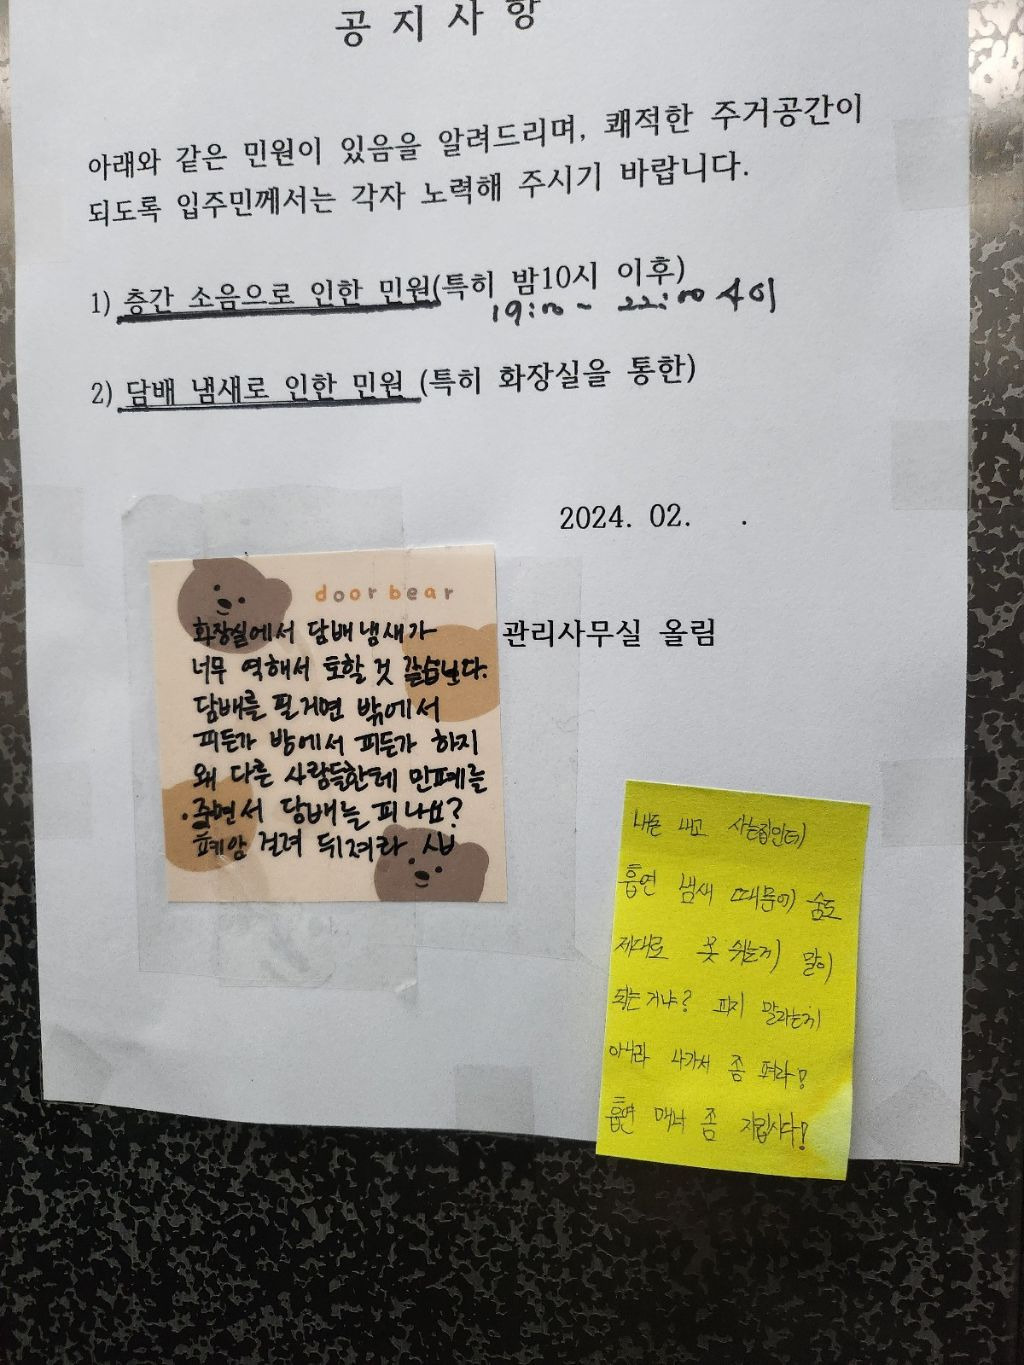 공 지 사 항
아래와 같은 민원이 있음을 알려드리며, 쾌적한 주거공간이
되도록 입주민께서는 각자 노력해 주시기 바랍니다.
1) 층간 소음으로 인한 민원(특히 밤10시 이후)
19:00 ~ 22:00 사이
2) 담배 냄새로 인한 민원 (특히 화장실을 통한)
2024. 02. .
관리사무실 올림
door bear
화장실에서 담배 냄새가
너무 역해서 토할 것 같습니다.
담배를 필거면 밖에서
피든가 방에서 피든가 하지
왜 다른 사람들한테 민폐를
주면서 담배를 피나요?
폐암 걸려 뒤져라 ㅅㅂ
내돈 내고 사는집인데
흡연 냄새 때문에 숨도
제대로 못 쉬는게 말이
되는거냐? 피지 말라는게
아니라 나가서 좀 펴라!
흡연 매너 좀 지킵시다!